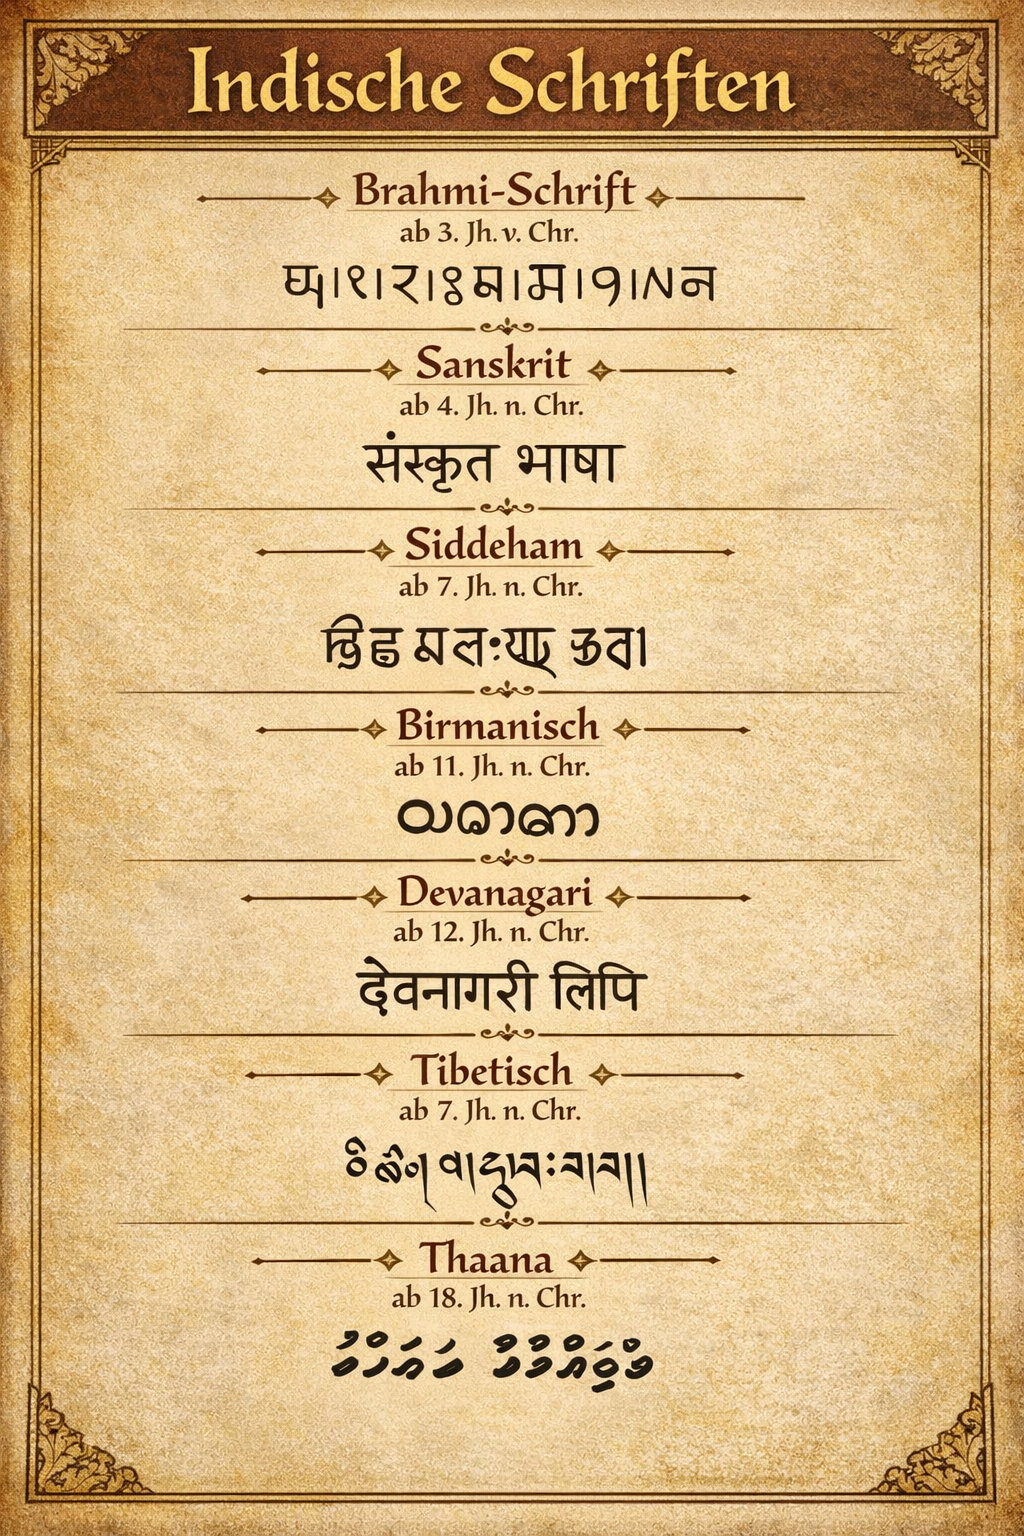 Indische Schriften
Brahmi-Schrift
ab 3. Jh. v. Chr.
Sanskrit
ab 4. Jh. n. Chr.
संस्कृत भाषा
Siddeham
ab 7. Jh. n. Chr.
Birmanisch
ab 11. Jh. n. Chr.
Devanagari
ab 12. Jh. n. Chr.
देवनागरी लिपि
Tibetisch
ab 7. Jh. n. Chr.
Thaana
ab 18. Jh. n. Chr.